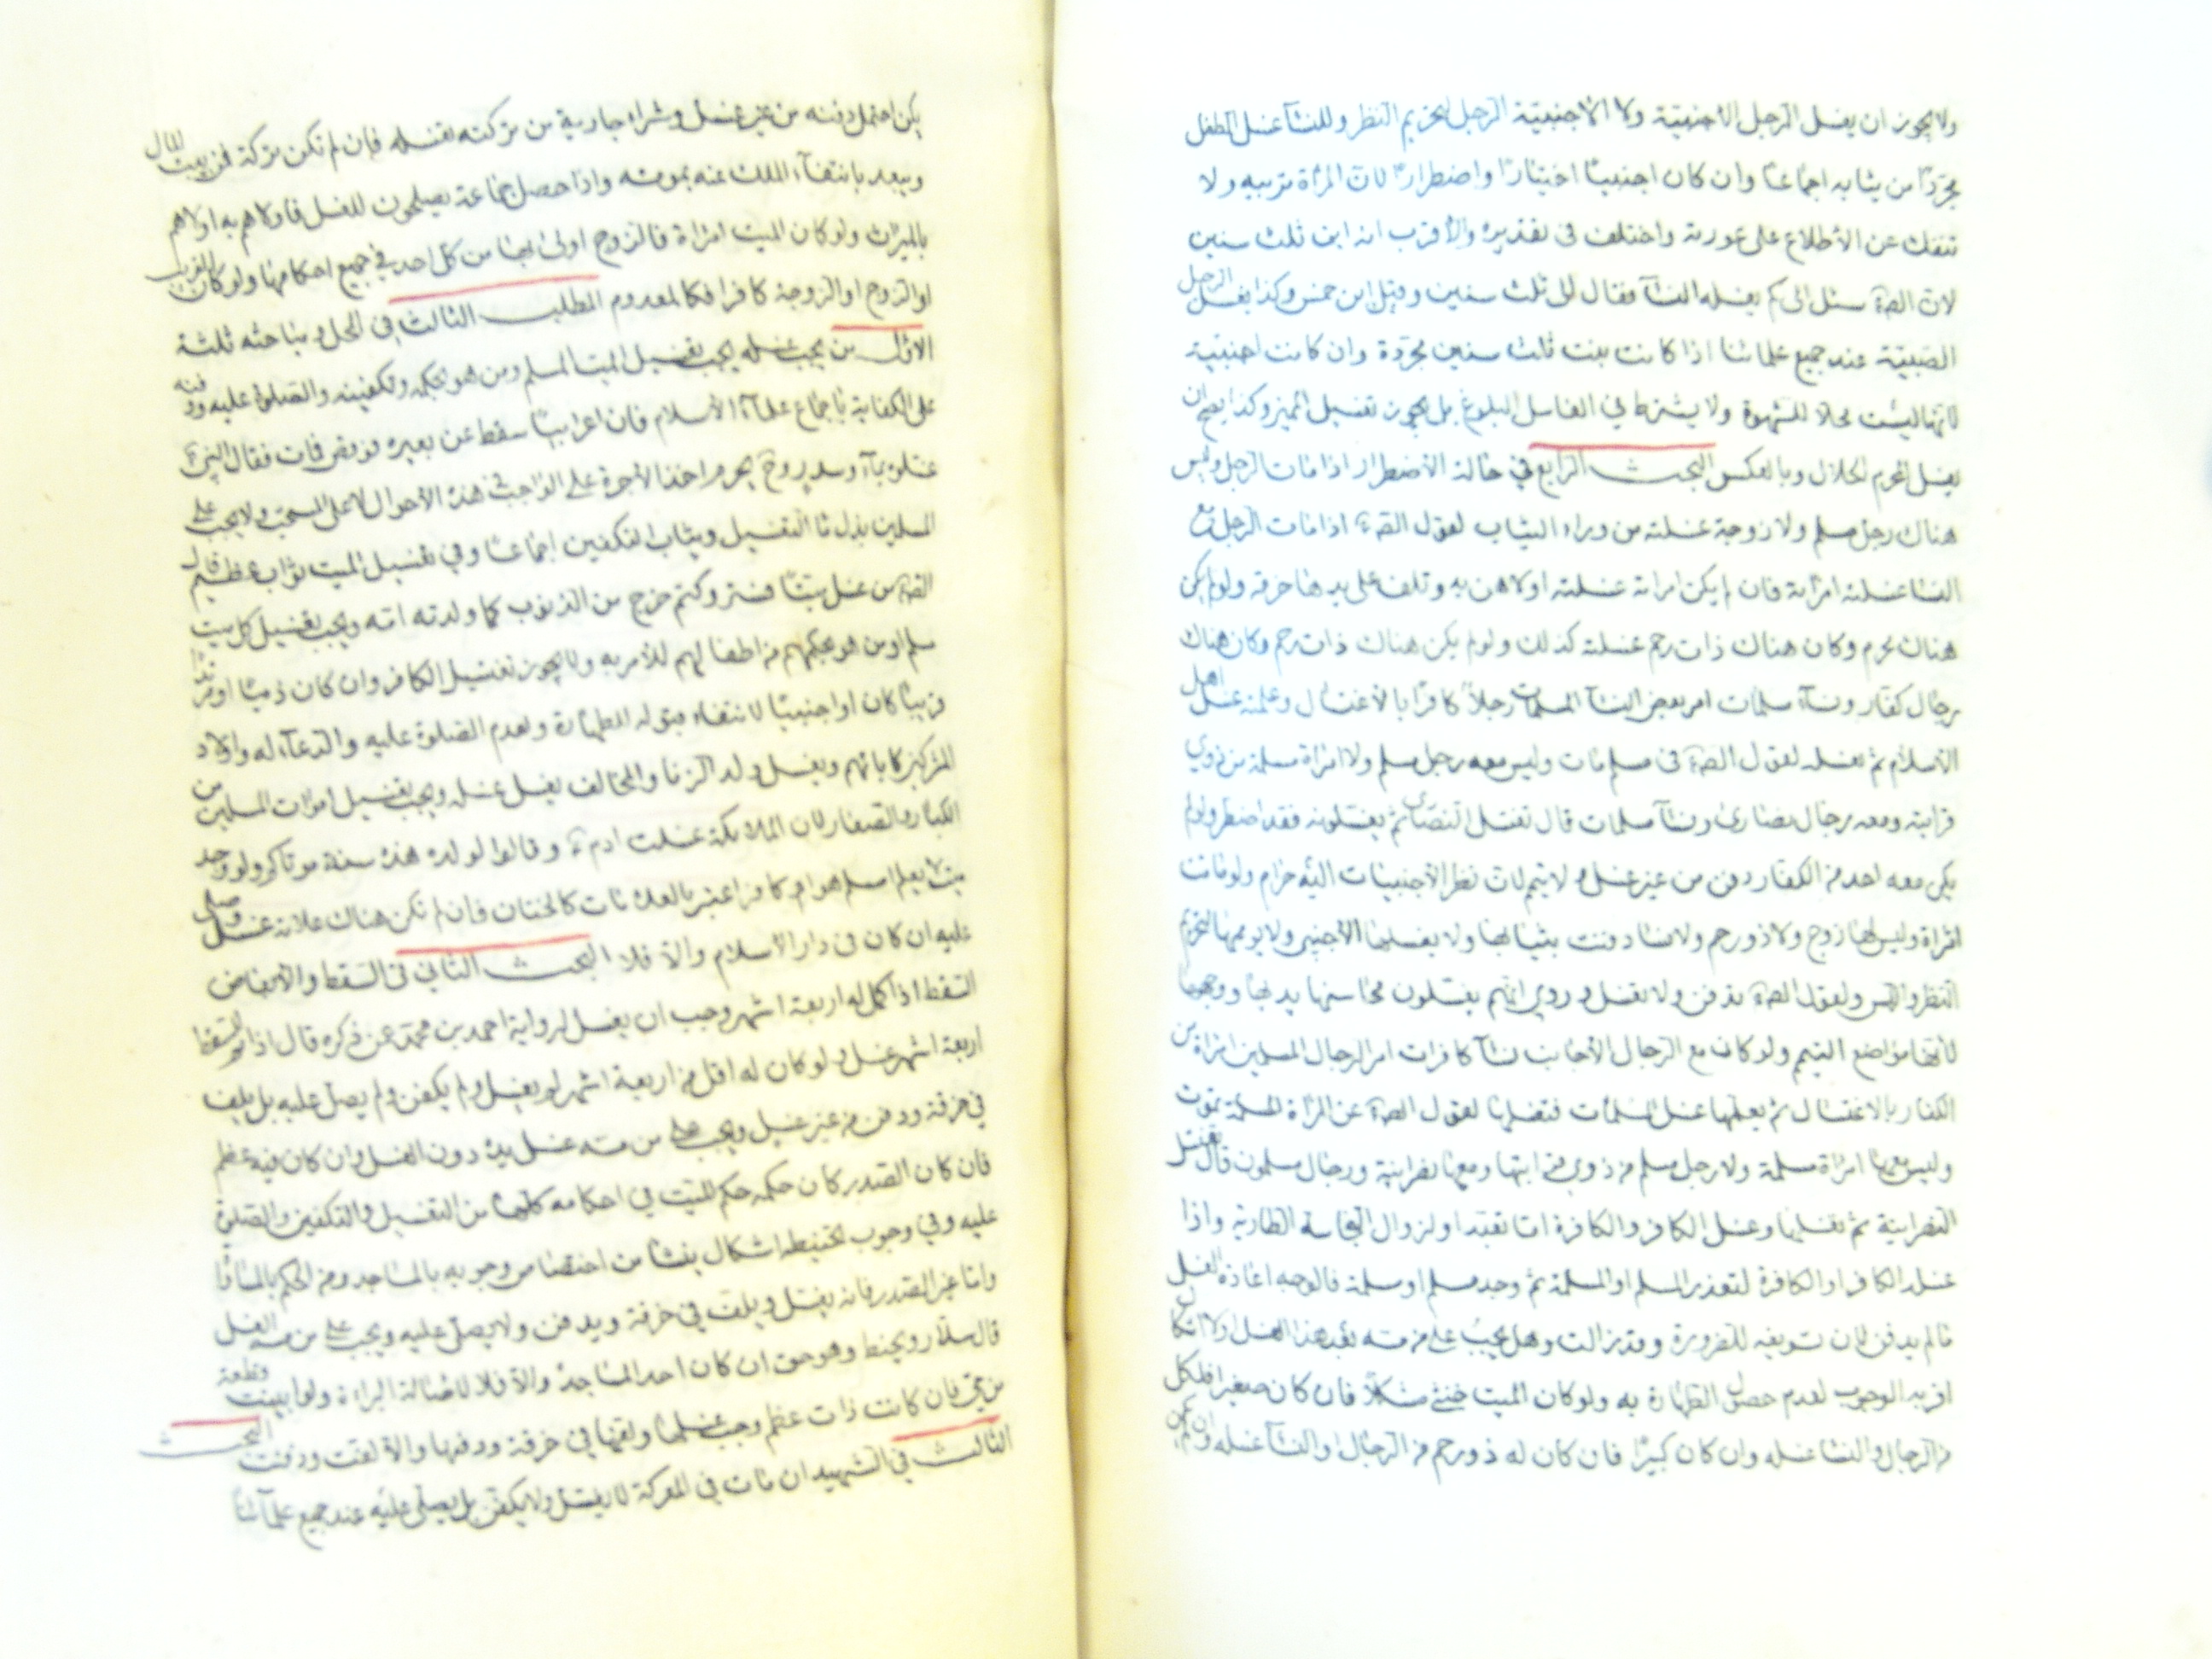 ولا يجوز ان يغسل الرجل الاجنبيّة ولا الاجنبيّة الرجل لتحريم النظر وللنسآء غسل الطفل
مجرّدًا من ثيابه اجماعًا وان كان اجنبيًا اختيارًا واضطرارًا لانّ المرأة تربيه ولا
تنفك عن الاطلاع على عورته واختلف في تقديره والاقرب انه ابن ثلث سنين
لان الصّ سئل الى كم يغسله النسآء فقال الى ثلث سنين وقيل ابن خمس وكذا يغسل الرجل
الصبيّة عند جميع علمائنا اذا كانت بنت ثلث سنين مجرّدة وان كانت اجنبيّة
لانّها ليست محلا للشهوة ولا يشترط في الغاسل البلوغ بل يجوز تغسيل المميز وكذا يصح ان
يغسل المحرم الحلال وبالعكس البحث الرابع في حالة الاضطرار اذا مات الرجل وليس
هناك رجل مسلم ولا زوجة غسلته من وراء الثياب لقول الصّ اذا مات الرجل مع
النسا غسلته امرأته فان لم يكن امراته غسلته اولاهن به وتلف على يدها خرقه ولو لم يكن
هناك محرم وكان هناك ذات رحم غسلته كذلك ولو لم يكن هناك ذات رحم وكان هناك
رجال كفار ونسآء مسلمات امر بعض النسآء المسلمات رجلاً كافرًا بالاغتسال وعلمته غسل اهل
الاسلام ثم يغسله لقول الصّ في مسلم مات وليس معه رجل مسلم ولا امراة مسلمة من ذوي
قرابته ومعه رجال نصارى ونسآء مسلمات قال تغتسل النصارى ثم يغسلونه فقد اضطر ولو لم
يكن معه احد من الكفار دفن من غير غسل ولا يتيمم لان نظر الاجنبيات اليه حرام ولو ماتت
امراة وليس لها زوج ولا ذو رحم ولا نسا دفنت بثيابها ولا يغسلها الاجنبي ولا يوممها لتحريم
النظر واللمس ولقول الصّ تدفن ولا تغسل وروي انهم يغسلون محاسنها يديها ووجهها
لانها مواضع التيمم ولو كان مع الرجال الاجانب نسآء كافرات امر الرجال المسلمين امراة من
الكفار بالاغتسال ثم يعلمها غسل المسلمات فتغسلها لقول الصّ عن المراة المسلمة تموت
وليس معها امراة مسلمة ولا رجل مسلم من ذوي قرابتها ومعها نصرانية ورجال مسلمون قال تغتسل
النصرانية ثم تغسلها وغسل الكافر والكافرة اما تعبّد او لزوال النجاسة الطارية واذا
غسله الكافر او الكافرة لتعذر المسلم او المسلمة ثم وجد مسلم او مسلمة فالوجه اعادة الغسل
ما لم يدفن لان تسويغه للضرورة وقد زالت وهل يجب على من مسه بعد هذا الغسل اولا اشكال
اقربه الوجوب لعدم حصول الطهارة به ولو كان الميت خنثى مشكلاً فان كان صغيرا فلكل
من الرجال والنسا غسله وان كان كبيرًا فان كان له ذو رحم من الرجال او النسآء غسله وان لم يكن
يكن احتمل دفنه من غير غسل وشراء جارية من تركته تغسله فان لم تكن تركة فمن بيت المال
ويبعد بانتفآء الملك عنه بموته واذا حصل جماعة يصلحون للغسل فاولاهم به اولاهم
بالميراث ولو كان الميت امراة فالزوج اولى بها من كل احد في جميع احكامها ولو كان القريب
او الزوج او الزوجة كافرا فكالمعدوم المطلب الثالث في المحل ومباحثه ثلثة
الاول من يجب غسله يجب تغسيل الميت المسلم ومن هو بحكمه وتكفينه والصلوة عليه ودفنه
على الكفاية باجماع علمآء الاسلام فان اعرابيًا سقط عن بعيره فوقص فمات فقال النبي
غسلوه بمآء وسدر وح يحرم اخذ الاجرة على الواجب في هذه الاحوال لا على المستحب ولا يجب على
المسلمين بذل مآء التغسيل وثياب التكفين اجماعًا وفي تغسيل الميت ثواب عظيم قال
الصّ من غسل ميتًا فستر وكتم خرج من الذنوب كما ولدته امه ويجب تغسيل كل ميت
مسلم او من هو بحكمهم من اطفالهم للامر به ولا يجوز تغسيل الكافر وان كان ذميًا او مرتدا
قريبًا كان او اجنبيًا لانتفاء قبوله للطهارة ولعدم الصلوة عليه والدعآء له واولاد
المشركين كابائهم ويغسل ولد الزنا والمخالف يغسل غسله ويجب تغسيل اموات المسلمين من
الكبار والصغار لان الملائكة غسلت ادم ع وقالوا لولده هذه سنة موتاكم ولو وجد
ميت لا يعلم امسلم هو ام كافر اعتبر بالعلامات كالختان فان لم تكن هناك علامة غسل وصلى
عليه ان كان في دار الاسلام والا فلا البحث الثاني في السقط والابعاض
السقط اذا كمل له اربعة اشهر وجب ان يغسل لرواية احمد بن محمد عن ذكره قال اذا تم السقط
اربعة اشهر غسل ولو كان له اقل من اربعة اشهر لم يغسل ولم يكفن ولم يصل عليه بل يلف
في خرقة ودفن من غير غسل ويجب على من مسه غسل يده دون الغسل وان كان فيه عظم
فان كان الصدر كان حكمه حكم الميت في احكامه كلها من التغسيل والتكفين والصلوة
عليه وفي وجوب تحنيطه اشكال ينشا من اختصاص وجوبه بالمساجد ومن الحكم بالمساواة
واما غير الصدر فانه يغسل ويلف في خرقة ويدفن ولا يصل عليه ويجب على من مسه الغسل
قال سلار ويحنط وهو حق ان كان احد المساجد والا فلا لاصالة البراءة ولو ابينت قطعة
من حي فان كانت ذات عظم وجب غسلها ولفها في خرقة ودفنها والا لفت ودفنت البحث
الثالث في الشهيد ان مات في المعركة لا يغسل ولا يكفن بل يصلى عليه عند جميع علمآئنا